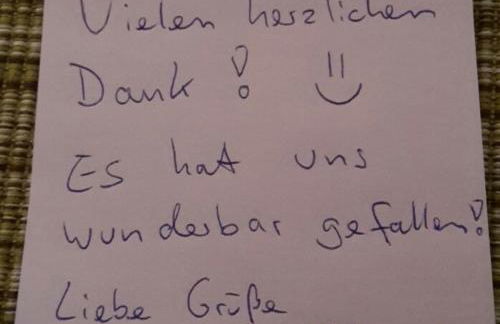 Vielen herzlichen
Dank! 
Es hat uns
wunderbar gefallen!
Liebe Grüße